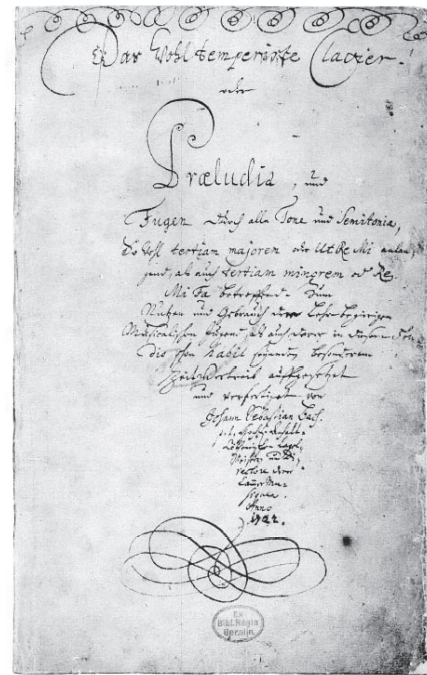 Das Wohltemperirte Clavier.
oder
Præludia, und
Fugen durch alle Tone und Semitonia,
So wohl tertiam majorem oder Ut Re Mi anlan-
gend, als auch tertiam minorem oder Re
Mi Fa betreffend. Zum
Nutzen und Gebrauch der Lehr-begierigen
Musicalischen Jugend, als auch derer in diesem stu-
dio schon habil seyenden besonderem
Zeitvertreib auffgesetzet
und verfertiget von
Johann Sebastian Bach.
p. t. Hochfürstl. Anhalt-
Cöthenischen Capel-
Meistern und Di-
rectore derer
Cammer Mu-
siquen.
Anno
1722.
Ex
Bibl. Regia
Berolin.